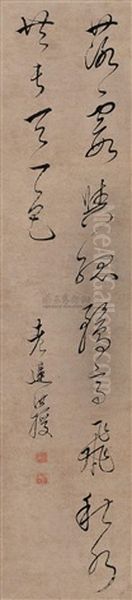 落霞與孤鶩齊飛秋水
共長天一色
老蓮洪綬